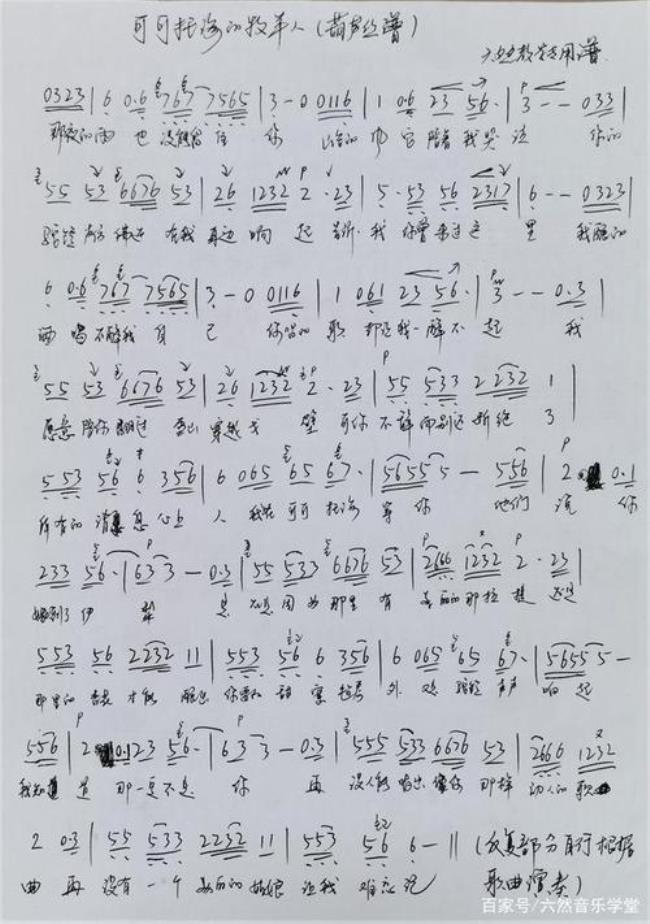 可可托海的牧羊人（葫芦丝谱）
教学专用谱
0323 | 6 0·6 767 7565 | 3 - 0 0116 | 1 06 23 56· | 3 - - 033 |
那夜的雨 也 没能留 住 你 山谷的 风 它 陪着 我哭 泣 你的
55 53 6676 53 | 26 1232 2 · 23 | 5 · 53 56 2317 | 6 - - 0323 |
驼铃 声 仿佛还 在我 耳边 响 起 告诉 我 你曾 来过这 里 我酿的
6 0·6 767 7565 | 3 - 0 0116 | 1 061 23 56· | 3 - - 0·3 |
酒 喝 不醉我 自 己 你唱的 歌 却让我一醉不 起 我
55 53 6676 53 | 26 1232 2 · 23 | 55 533 2 232 1 3 |
愿意 陪你 翻过 雪山 穿越 戈 壁 可你 不辞而别还 断绝
5 53 56 6 356 | 6 065 65 67· | 5655 5 - 556 | 2 0·1
所有的 消 息 心上 人 我在 可可 托海 等 你 他们 说 你
233 56· | 63 3 - 0·3 | 55 533 6676 53 | 2666 1232 2 · 23 |
嫁到了 伊 犁 是 不是 因为 那里 有 美丽的 那拉 提 还是
553 56 2232 11 | 553 56 6 356 | 6 065 65 67· | 5655 5 -
那里的 杏花 才能 酿出 你要的 甜 蜜 毡房 外 又有 驼铃 声声 响 起
556 | 2 0·123 56· | 63 3 - 0·3 | 555 533 6676 53 | 2666 1232
我知道 那一定不是 你 再 没人能 唱出 像你 那样 动人的 歌
2 0·3 | 55 533 2232 11 | 553 56 6 - || （反复部分自行根据
曲 再 没有 一个 美丽的 姑娘 让我 难忘记 歌曲演奏）
百家号/六然音乐学堂